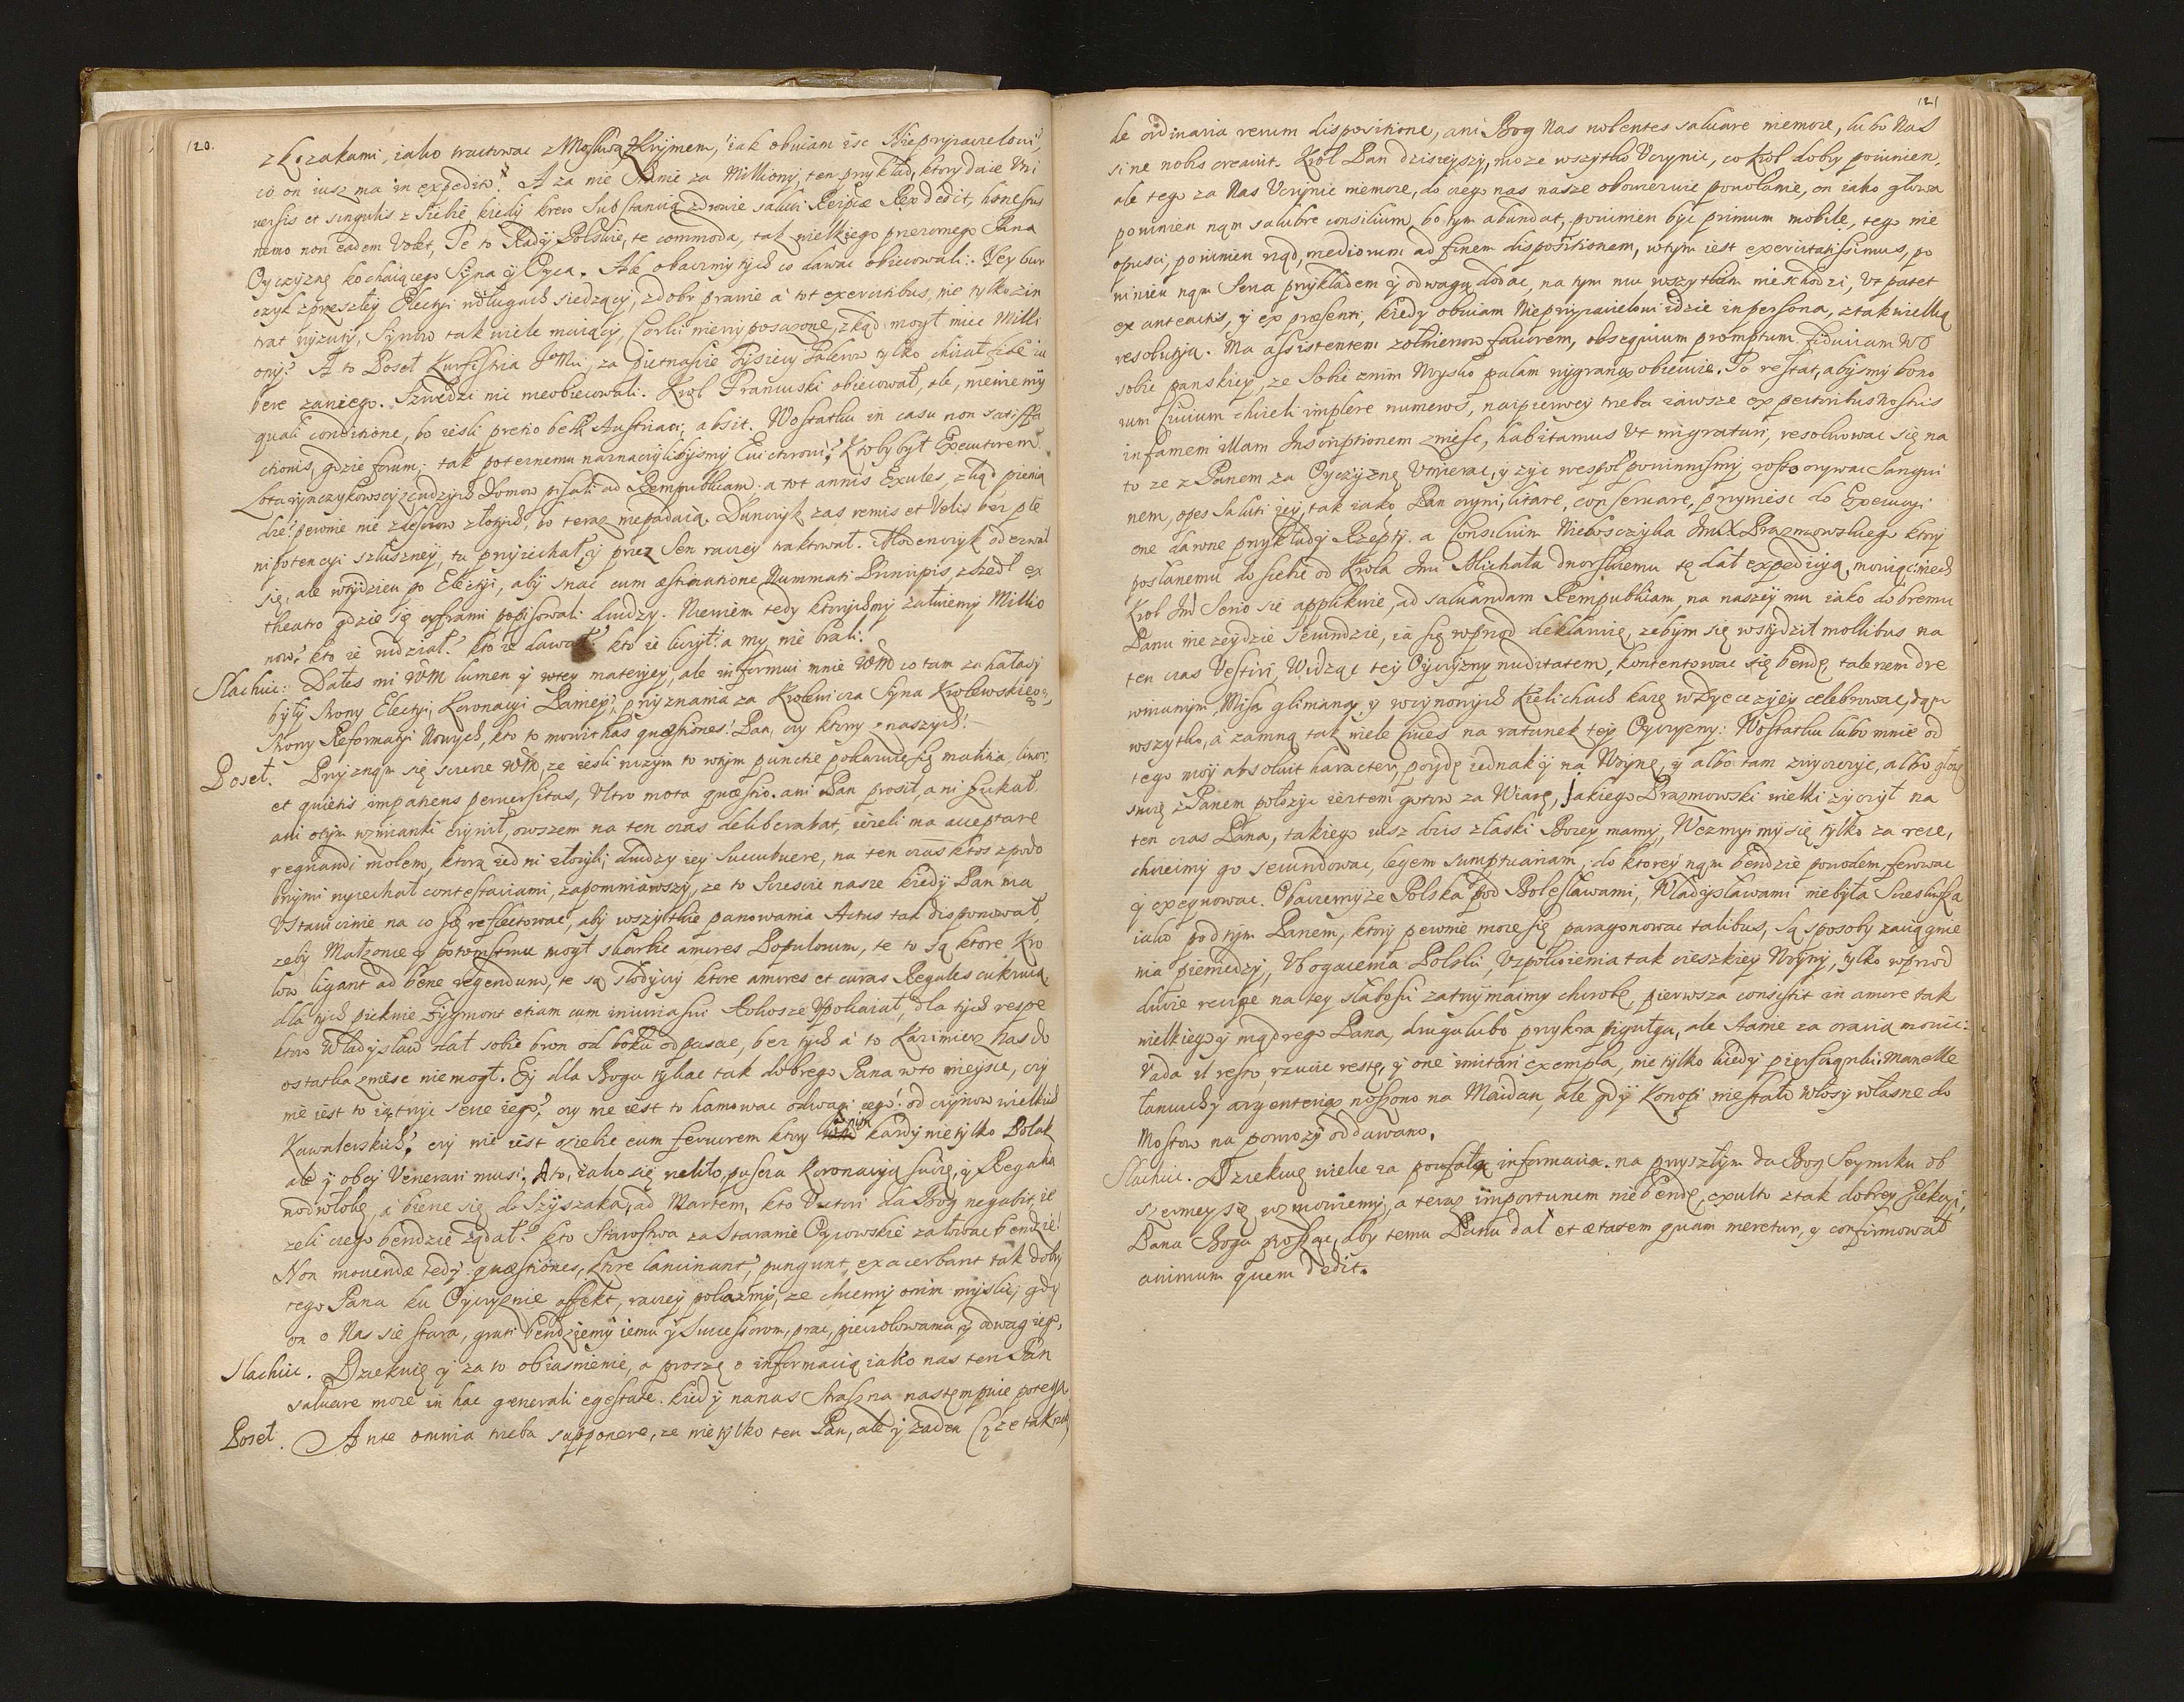 120.
z kozakami, iako tractowac z Moskwą z Krymem, iak obuiam isc Nieprzyiacielowi,
co on iusz ma in expedito? A za nie stanie za Milliony, ten przykład, ktory daie Vni
uersis et singulis z siebie, kiedy krew Substantią zdrowie saluti Reipcæ Rex dedit, honestus
nemo non eadem Volet, Te to Rady Polskie, te commoda, tak wielkiego przezornego Pana
Oyczyznę kochaiącego Syna y Oyca. Ale obaczmy tych co dawac obiecowali: Ney bur
czyk z przeszłey Electyi w długach siedzący, z dobr prawie a tot exercitibus, nie tylko z in
trat wyzuty, Synow tak wiele maiący, Corki niewyposazone, zkąd mogł miec Milli
ony? A to Poseł Kurfistra JoMci, za pietnascie Tysięcy Talerow tylko chciał fide iu
bere za niego. Szwedzi nic nieobiecowali. Krol Francuski obiecował, ale, niewiemy
quali conditione, bo iesli pretio belli Austriaci, absit. Wostatku in casu non satisffa
ctionis, gdzie forum; tak potęznemu naznaczylibysmy Euictorowi? Ktoby był Executorem
Lotaryńczykowscy z cudzych Domow pisali ad Rempublicam. a tot annis Exules, zkąd pienią
dze? pewnie nie z deszczow złotych, bo teraz niepadaią. Duńczyk zas remis et Velis bez ple
nipotencyi słuszney, tu przyiechał y przez Sen raczey traktował. Modeńczyk odezwał
się, ale w tydzien po Electyi, aby snac cum æstimatione Nummati Principis, zszedł ex
theatro gdzie się cyframi popisowali ludzy. Niewiem tedy ktorychmy załuiemy Millio
now? kto ie widział? kto ie dawał? kto ie liczył? a my nie brali.
Slachcic: Dałes mi WM lumen y w tey materyey, ale informui mnie WM co tam za hałasy
były strony Electyi, Koronacyi Paniey? przyznania za Krolewica Syna Krolewskiego?,
strony Reformatyi Nowych, kto to mowit has quæstiones? Pan, czy ktory z naszych?
Poseł. Przyznąm się szczerze WM, ze iesli w czym to w tym puncte pokazuie się malitia, liuor,
et quietis impatiens peruersitas, Vltro mota quæstio. ani Pan prosił, ani szukał,
ani o tym wzmianki czynił, owszem na ten czas deliberabat, iezeli ma acceptare
regnandi molem, ktorą iedni złozyli, drudzy iey Succubuere, na ten czas ktos z podo
bnymi wyiechał contestaciami, zapomniawszy, ze to Szczescie nasze kiedy Pan ma
Vstawicznie na co się reflectowac, aby wszytkie panowania Actus tak disponował,
zeby Małzonce y potomstwu mogł skarbic amores Populorum, te to są ktore Kro
low ligant ad bene regendum, te są słodyczy ktore amores et curas Regales cukruią
dla tych pieknie Zygmont etiam cum iniuria sui Rokosze Vspokaiał, dla tych respe
ktow Władysław dał sobie bron od boku odpasac, bez tych a to Kazimierz nas do
ostatka zniesc niemogł. Ey dla Boga tykac tak dobrego Pana w to mieysce, czy
nie iest to iątrzyc serce iego?, czy nie iest to hamowac odwagi iego? od czynow wielkich
Kawalerskich? czy nie iest ozięble eum feruorem ktory w nim kazdy nie tylko Polak
ale y obcy Venerari musi. A to, iako się rzekło, puszcza Koronacyą swoię, y Regalia
nad wolobę, a bierze się do Szyszaka, ad Martem, kto Victori da Bog negabit, ie
zeli czego bendzie ządał? kto Starostwa za Staranie Oycowskie załować bendzie?
Non mouendæ tedy quæstiones, ktore lancinant, pungunt, exacerbant tak dob
rego Pana ku Oyczyznie affekt, raczey pokazmy, ze chcemy onim myslic, gdy
on o Nas się stara, grati bendziemy iemu y Successorom, prac, pieczołowania y odwag iego,
Slachcic. Dziekuię y za to obiasnienie, a proszę o informacią iako nas ten Pan
saluare moze in hac generali egestate. kiedy na nas Straszna nastempuie potęga
Poseł. Ante omnia trzeba supponere, ze nie tylko ten Pan, ale y zaden (ze tak rzekę)
121
de ordinaria rerum dispositione, ani Bog Nas nolentes saluare niemoze, lubo Nas
sine nobis creauit. Krol Pan dzisieyszy, moze wszytko Vczynic, co Krol dobry powinien,
ale tego za Nas Vczynic niemoze, do czego nas nasze obowiezuie powołanie, on iako głowa
powinien nąm salubre consilium, bo tym abundat, powinien byc primum mobile, tego nie
opusci, powinien rząd, mediorum ad finem dispositionem, w tym iest exercitatissimus, po
winien nąm Serca przykładem y odwagą dodac, na tym mu wszytkim nieschodzi, Vt patet
ex anteactis, y ex præsenti, kiedy obuiam Nieprzyiacielowi idzie in persona, z tak wielką
resolutią. Ma assistentem zołnierzow fauorem, obsequium promptum. fiduciam w o
sobie panskiey, ze sobie z nim Woysko palam wygraną obiecuie. To restat, abysmy bono
rum Ciuium chcieli implere numeros, naypierwey trzeba zawsze ex pectoribus nostris
infamem illam Inscriptionem zniesc, habitamus Vt migraturi, resoluowac się na
to ze z Panem za Oyczyznę Vmierac, y zyc wespoł powinnismy, zastawiac Sangui
nem, opes saluti iey, tak iako Pan czyni, litare, conseruare, przyniesc do Execucyi
one dawne przykłady Rzeptey. a Consilium Nieboszczyka JmX Prazmowskiego ktory
posłanemu do siebie od Krola Jmci Michała dworskiemu tę dał expedicyą, mowiąc: niech
Krol Jmc Serio się applikuie, ad saluandam Rempublicam, na naszey mu iako dobremu
Panu nie zeydzie secundzie, ia się w przod deklaruię, zebym się wstydził mollibus na
ten czas Vestiri, Widząc tey Oyczyzny nuditatem, kontentowac się bendę, talerzem dre
wnianym, Mszą glinianą, y w cynowych Kielichach karę w Dyecezyiey celebrowac, dąm
wszytko, a zamną tak wiele ciues na ratunek tey Oyczyzny: Wostatku lubo mnie od
tego moy absoluit haracter, poydę iednak y na Woynę, y albo tam zwycięzyc, albo głowę
swoię z Panem połozyc iestem gotow za Wiarę, Jakiego Prazmowski wielki zyczył na
ten czas Pana, takiego iusz dzis z łaski Bozey mamy, Wezmyi my się tylko za ręce,
chcieimy go secundowac, legem sumptuariam, do ktorey nąm bendzie powodem, ferowac
y exequowac. Obaczemy ze Polska pod Bolesławami, Władysławami niebyła Szczesliwsza
iako pod tym Panem, ktory pewnie moze się paragonowac talibus, są sposoby zaciągnie
nia pieniedzy, Vbogacenia Polski, Vspokoienia tak cieszkiey Woyny, tylko w przod
dwie recipe na tey słabosci zatrzymaimy chorobę, pierwsza consistit in amore tak
wielkiego y mądrego Pana, druga lubo przykra pigułga, ale stanie za oracią mowic:
Vada il resto, rzucic resztę, y one imitari exempla, nie tylko kiedy pierscąnki, Manelle
łancuchy argenteriæ noszono na Maidan, ale gdy Konopi niestało włosy własne do
Mostow na powrozy oddawano.
Slachcic. Dziekuię wielce za poufałą informacią. na przyszłym da Bog Seymiku ob
szerniey się rozmowiemy, a teraz importunem nie bendę, exulto z tak dobrey Elekcyi,
Pana Boga prosząc, aby temu Panu dał et ætatem quam meretur, y confirmował
animum quem dedit.